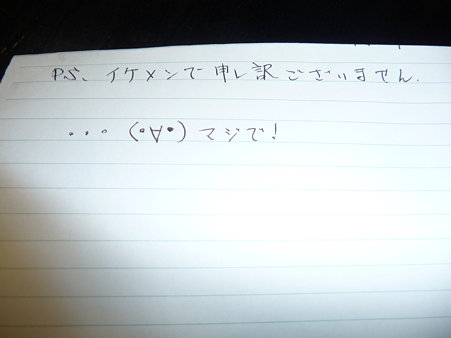 P.S、イケメンで申し訳ございません.
・・・(•∀•)マジで!